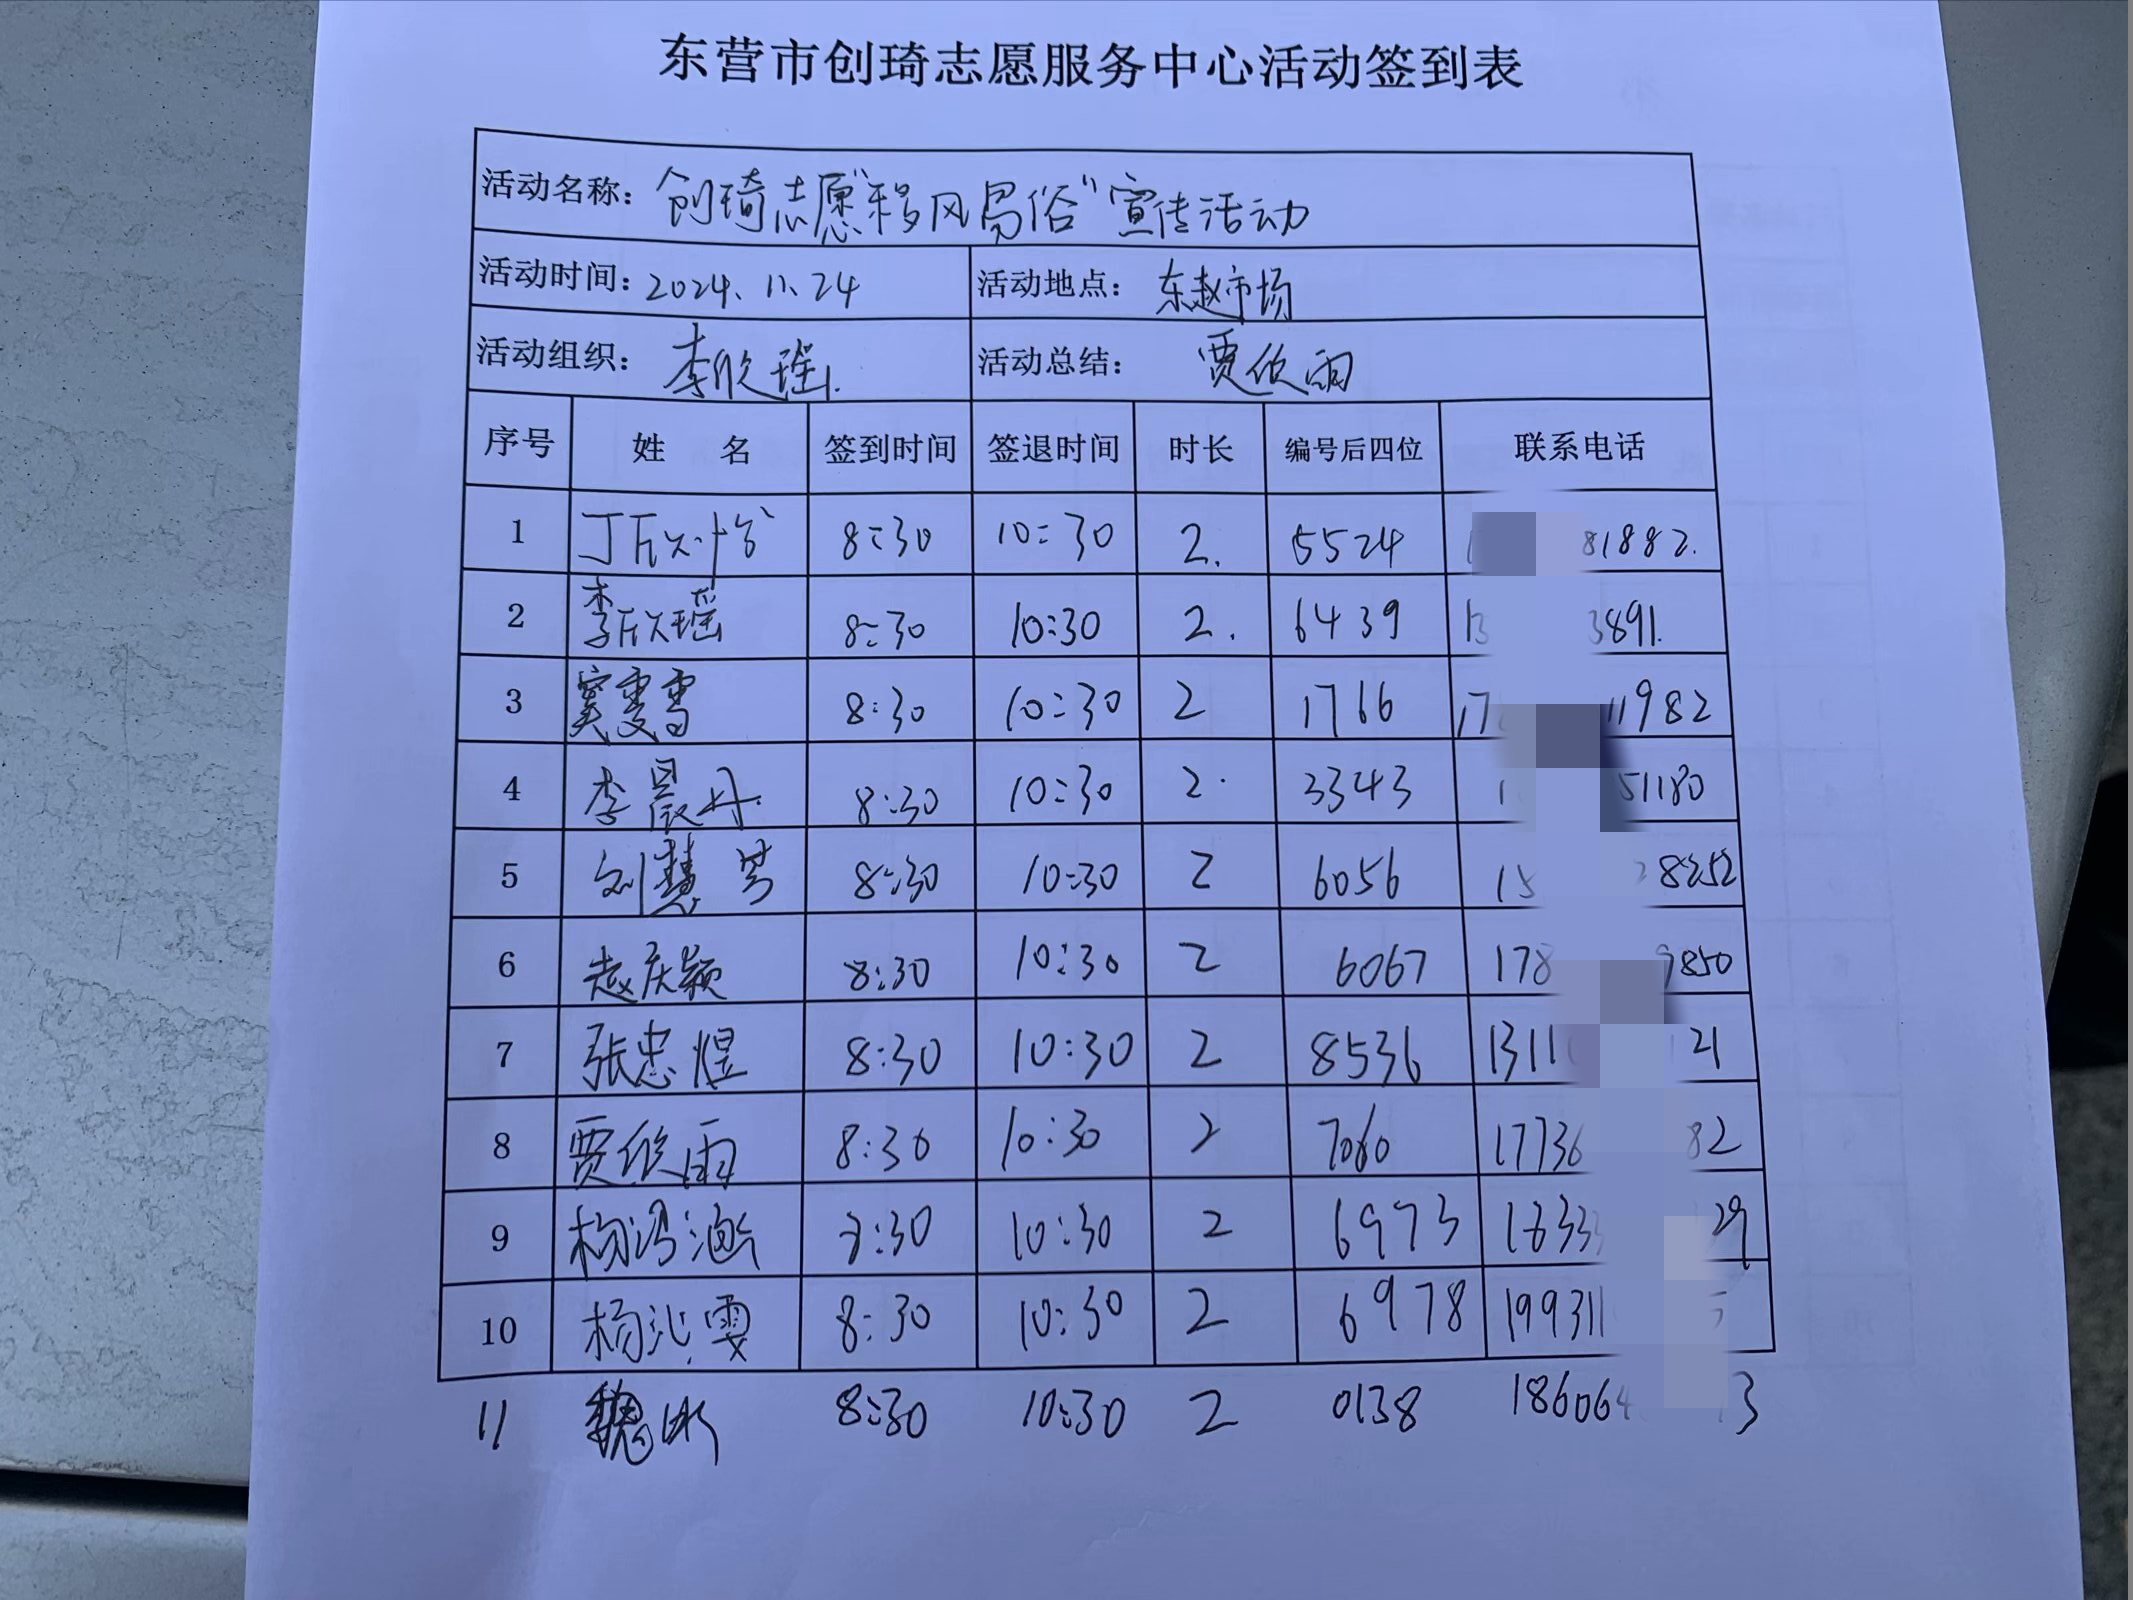 东营市创琦志愿服务中心活动签到表
活动名称：创琦志愿“移风易俗”宣传活动
活动时间：2024.11.24 活动地点：东赵市场
活动组织：李欣瑶 活动总结：贾欣雨
序号 姓 名 签到时间 签退时间 时长 编号后四位 联系电话
1 丁欣怡 8:30 10:30 2. 5524 1 81882.
2 李欣瑶 8:30 10:30 2. 6439 13 3891.
3 窦雯雪 8:30 10:30 2 1766 17 11982
4 李晨丹 8:30 10:30 2. 3343 1 51180
5 刘慧芳 8:30 10:30 2 6056 15 28252
6 赵庆颖 8:30 10:30 2 6067 178 9850
7 张忠煜 8:30 10:30 2 8536 1311 21
8 贾欣雨 8:30 10:30 2 7060 17736 82
9 杨涵 8:30 10:30 2 6973 16333 29
10 杨沁雯 8:30 10:30 2 6978 199311
11 魏冰 8:30 10:30 2 0138 186064 3